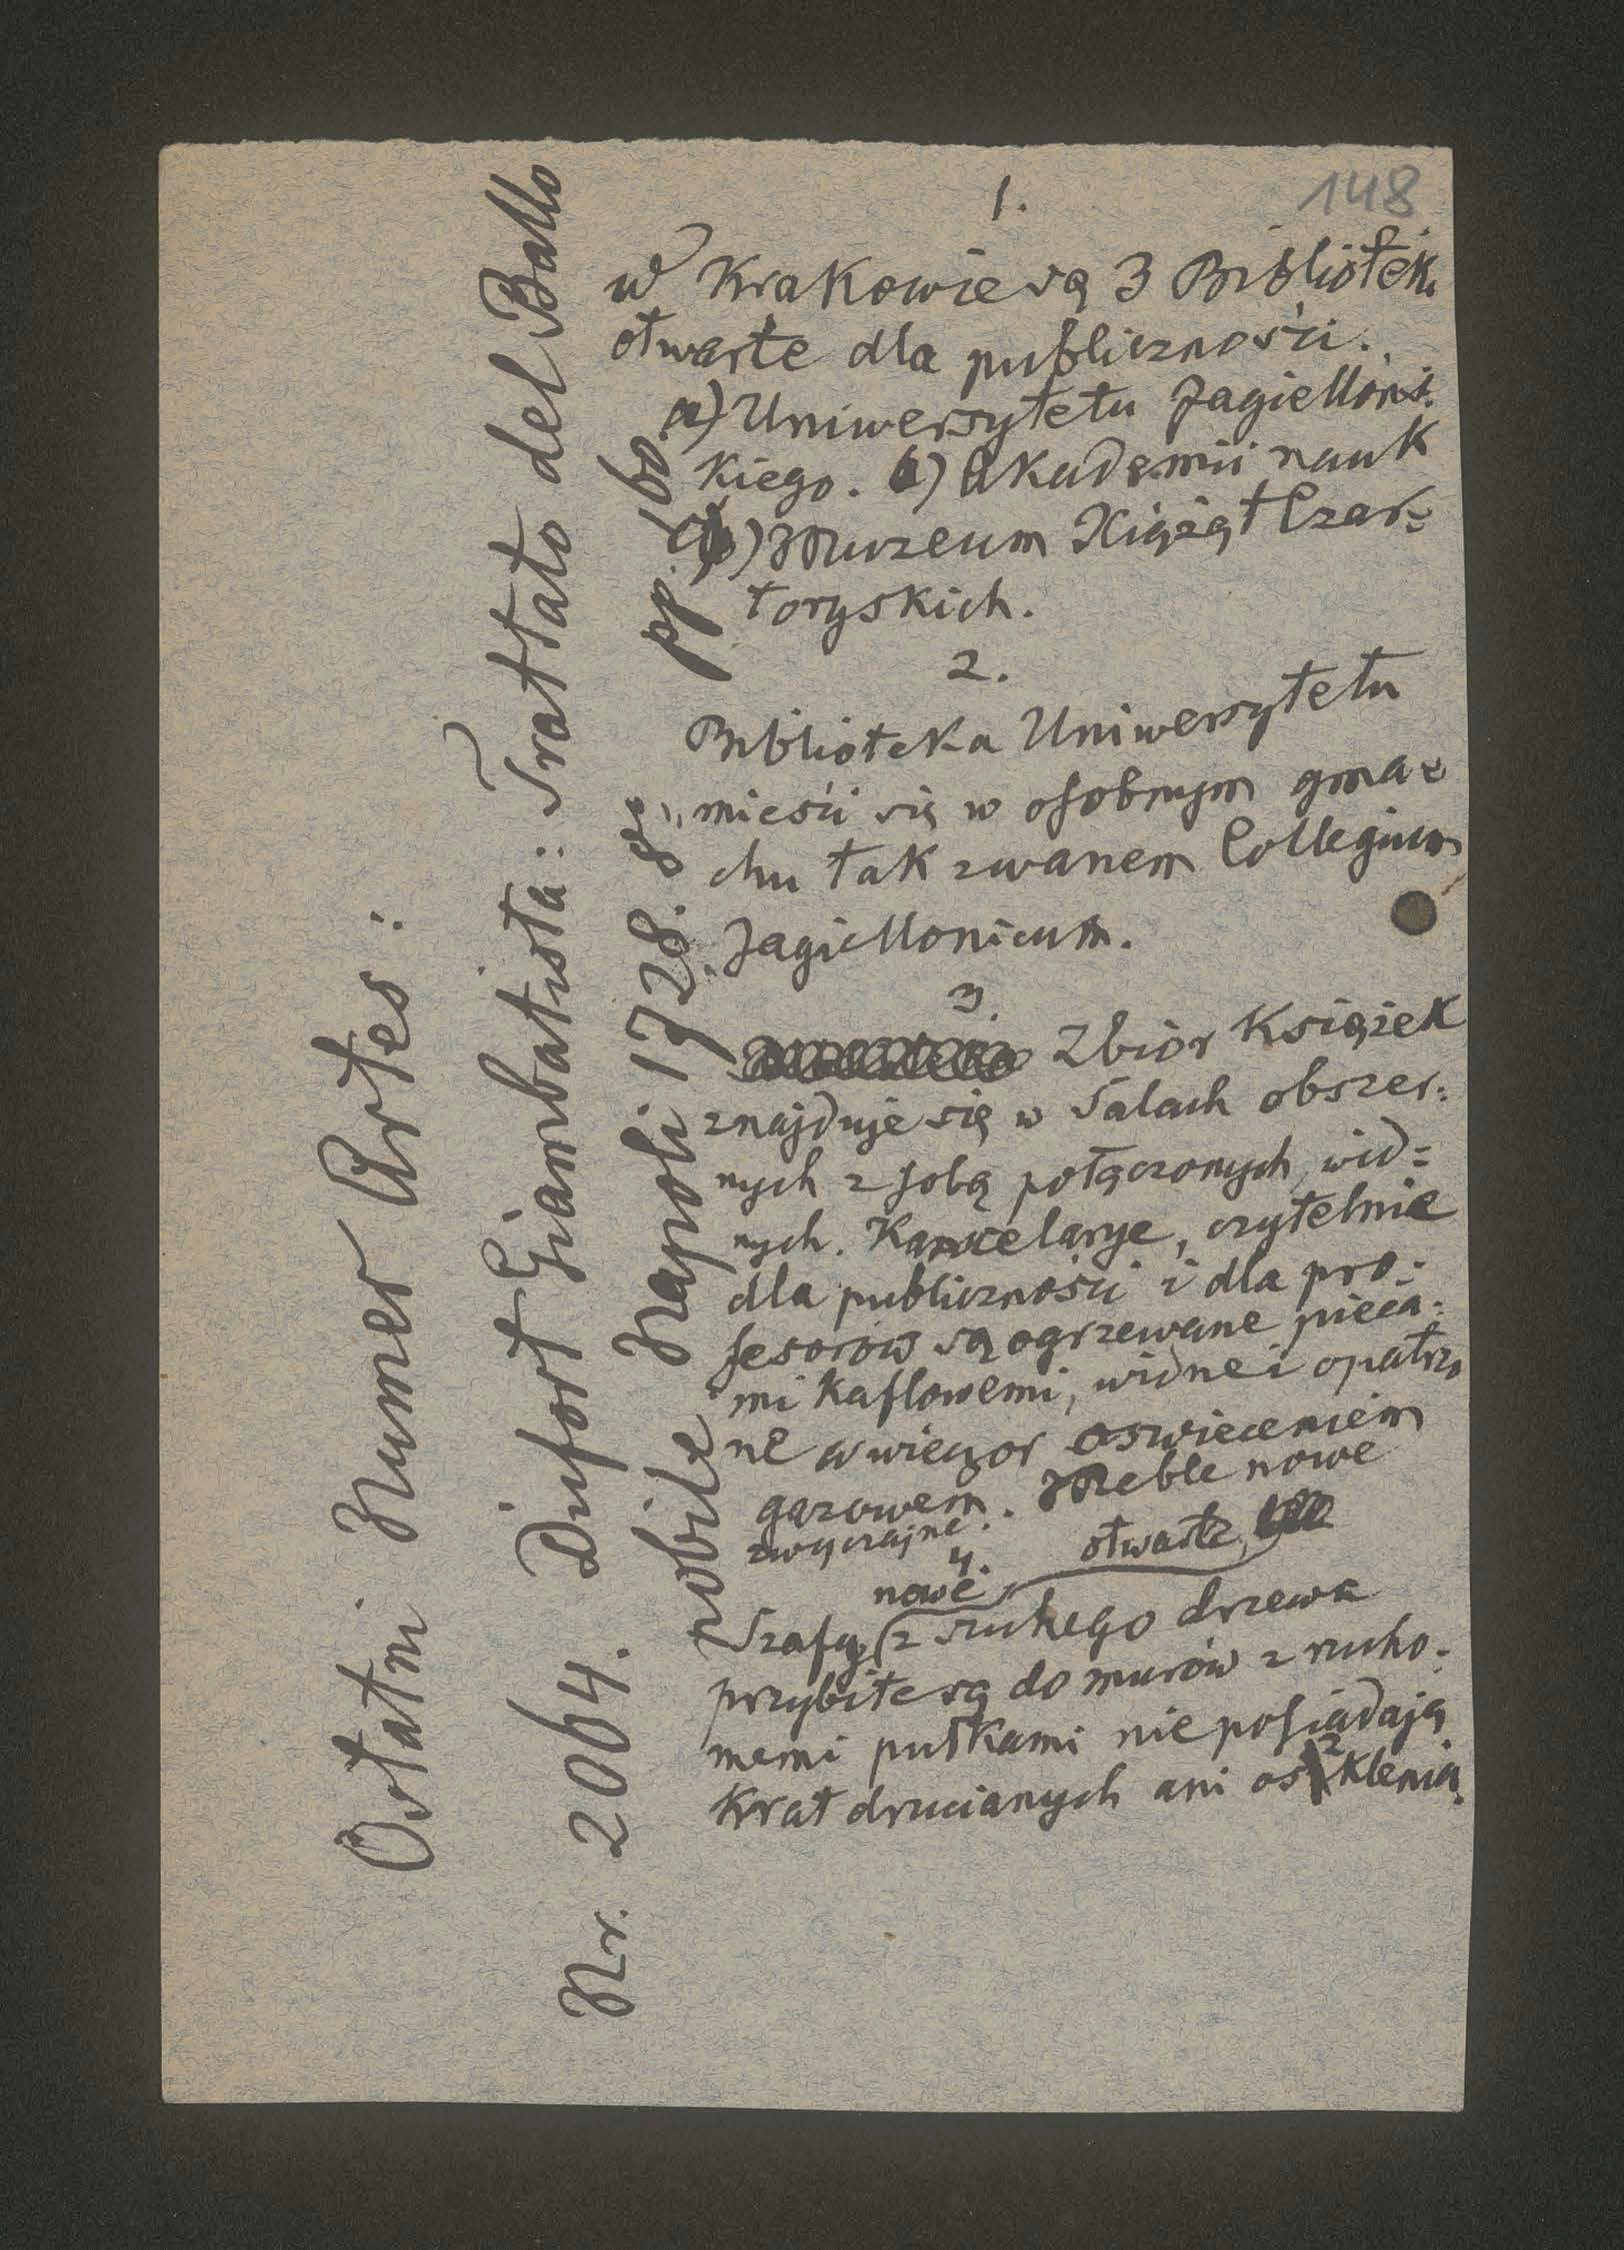 148
1.
w Krakowie są 3 Bibliotek
otwarte dla publiczności.
a) Uniwersytetu Jagiellońs=
kiego. b) Akademii nauk
c) Muzeum Xiążąt Czar=
toryskich.
2.
Biblioteka Uniwersytetu
mieści się w osobnym gma=
chu tak zwanem Collegium
Jagiellonicum.
3.
Zbiór Książek
znajduje się w Salach obszer=
nych z sobą połączonych, wid=
nych. Kancelarye, czytelnie
dla publiczności i dla pro=
fesorów są ogrzewane pieca=
mi kaflowemi, widne i opatrzo
ne w wieczor oswieceniem
gazowem. Meble nowe
zwyczajne.
4.
nowe otwarte,
Szafy z suchego drzewa
przybite są do murów z rucho=
memi pułkami nie posiadają
Krat drucianych ani oszklenia.
Ostatni Numer Artes:
Nr. 2064. Dufort Giambatista: Trattato del Ballo
nobile Napoli 1728. 8º,
pp. 160.